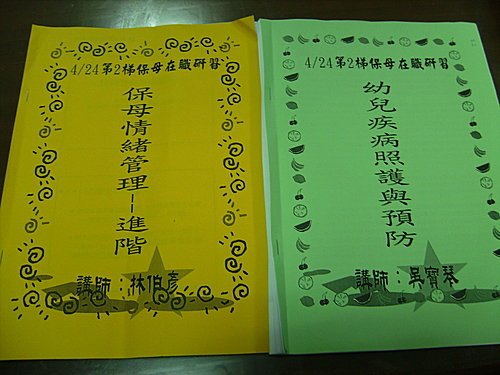 4/24第2梯保母在職研習
保母情緒管理－進階
講師：林伯彥
4/24第2梯保母在職研習
幼兒疾病照護與預防
講師：吳寶琴